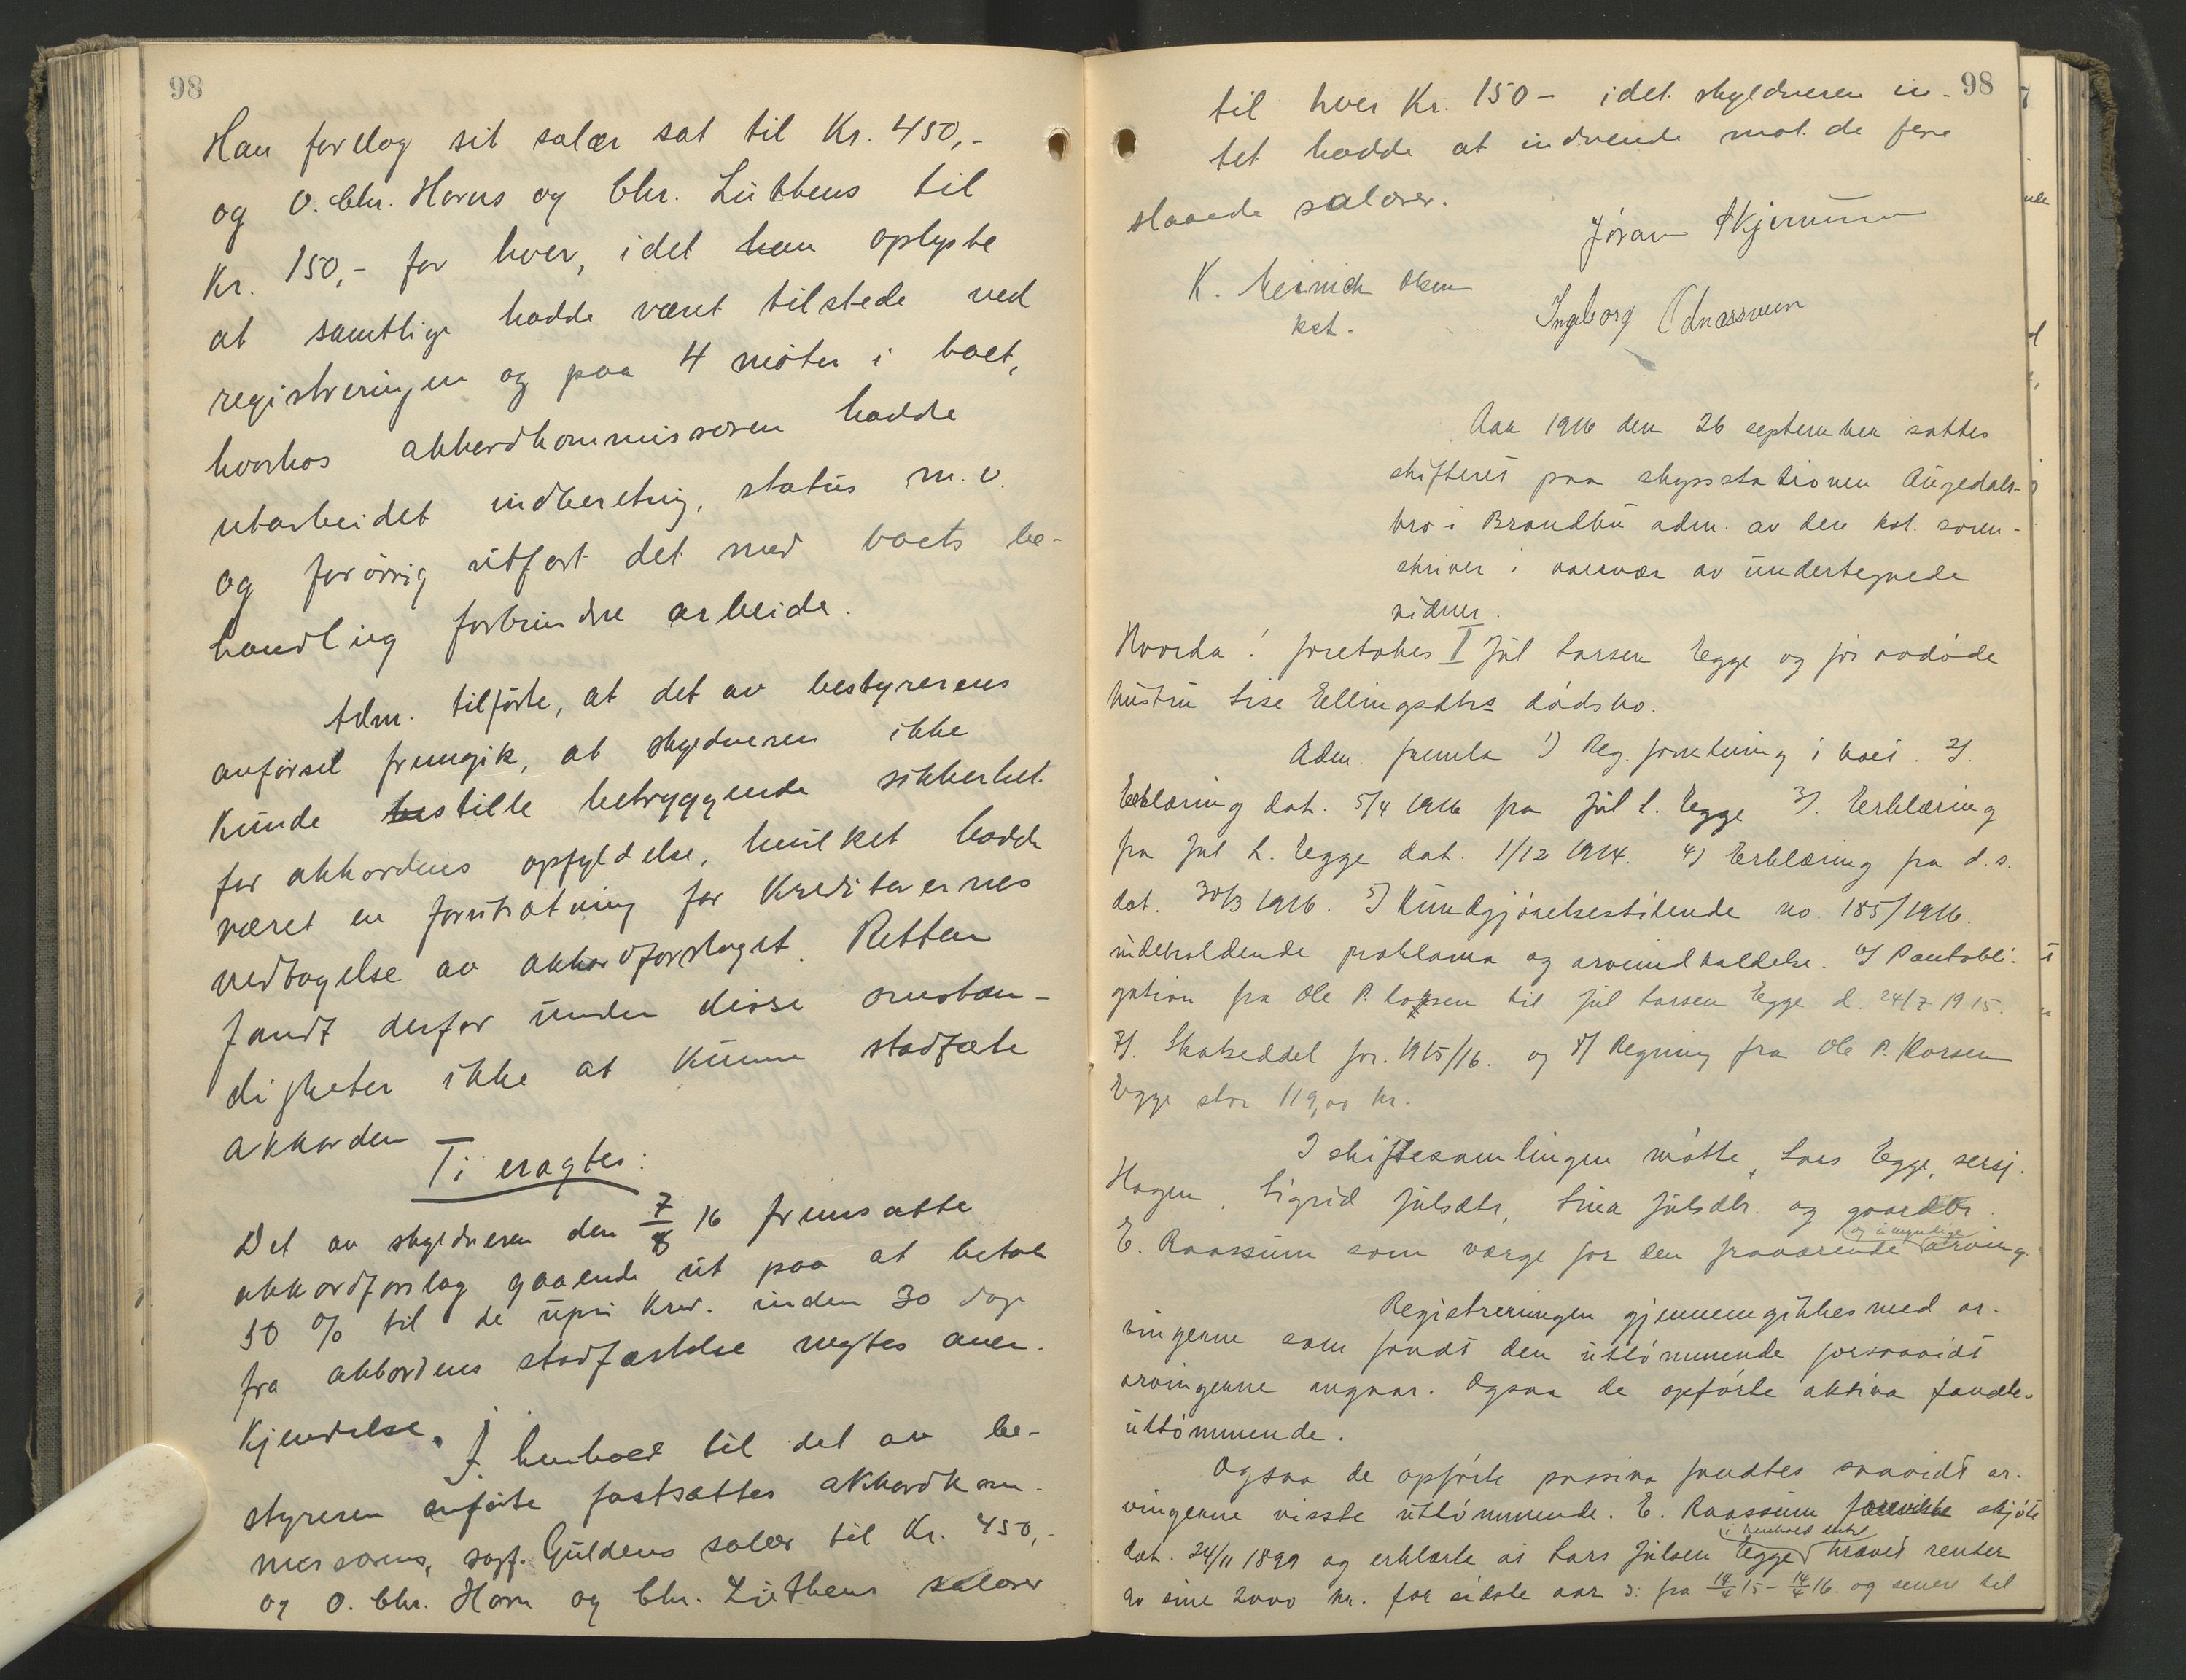 98
Han foreslog sit salær sat til Kr. 450,-
og O. Chr. Horns og Chr. Lüthens til
Kr. 150,- for hver, idet han oplyste
at samtlige hadde været tilstede ved
registreringen og paa 4 møter i boet,
hvorhos akkordkommissæren hadde
utarbeidet indberetnig, status m.v.
og forøvrig utført det med boets be-
handling forbundne arbeide.
Adm. tilførte, at det av bestyrerens
anførsel fremgik, at skyldneren ikke
kunde stille betryggende sikkerhet
for akkordens opfyldelse, hvilket hadde
været en forutsætning for Kreditorernes
vedtagelse av akkordforslaget. Retten
fandt derfor under disse omstæn-
digheter ikke at kunne stadfæste
akkorden
Ti eragtes:
Det av skyldneren den 7/8 16 fremsatte
akkordforslag gaaende ut paa at betale
50 % til de upri. kred. inden 30 dage
fra akkordens stadfæstelse negtes aner-
kjendelse. I henhold til det av be-
styreren anførte fastsættes akkordkom-
missærens, sagf. Guldens salær til Kr. 450,-
og O. Chr. Horn og Chr. Lüthens salærer
98
til hver Kr. 150- idet skyldneren in-
tet hadde at indvende mot de fore
slaaede salærer.
Jøran Skjerum
K. Meinich Olsen
kst.
Ingeborg
Aar 1916 den 26 september sattes
skifteret paa skysstationen Augedals-
bro i Brandbu adm. av den kst. soren-
skriver i nærvær av undertegnede
vidner.
Hvorda: foretokes I Jul Larsen Egge og for avdøde
hustru Lise Ellingsdtrs dødsbo.
Adm. fremla 1) Reg. forretning i boet. 2)
Erklæring dat. 5/4 1916 fra Jul L. Egge 3) Erklæring
fra Jul L. Egge dat. 1/12 1914. 4) Erklæring fra d.s.
dat. 30/3 1916. 5) Kundgjørelsestidende no. 185/1916.
indeholdende proklama og arveindkaldelse. 6) Pantobli-
gation fra Ole P. Larsen til Jul Larsen Egge d. 24/7 1915.
7). Skatseddel for 1915/16. og 8) Regning fra Ole P. Larsen
Egge stor 119,00 kr.
I skiftesamlingen møtte Lars Egge, sersj.
Hagen, Sigrid Julsdtr, Lina Julsdtr. og gaardbr.
E. Raassum som værge for den fraværende og umyndige arving.
Registreringen gjennemgikkes med ar-
vingerne som fandt den uttømmende forsaavidt
arvingerne angaar. Ogsaa de opførte aktiva fandtes
uttømmende.
Ogsaa de opførte passiva fandtes saavidt ar-
vingerne visste uttømmende. E. Raassum foreviste skjøte
dat. 24/11 1899 og erklærte at Lars Julsen Egge i henhold dertil krævet renter
av sine 2000 kr. for sidste aar ɔ: fra 14/4 15 - 14/4 16. og senere til